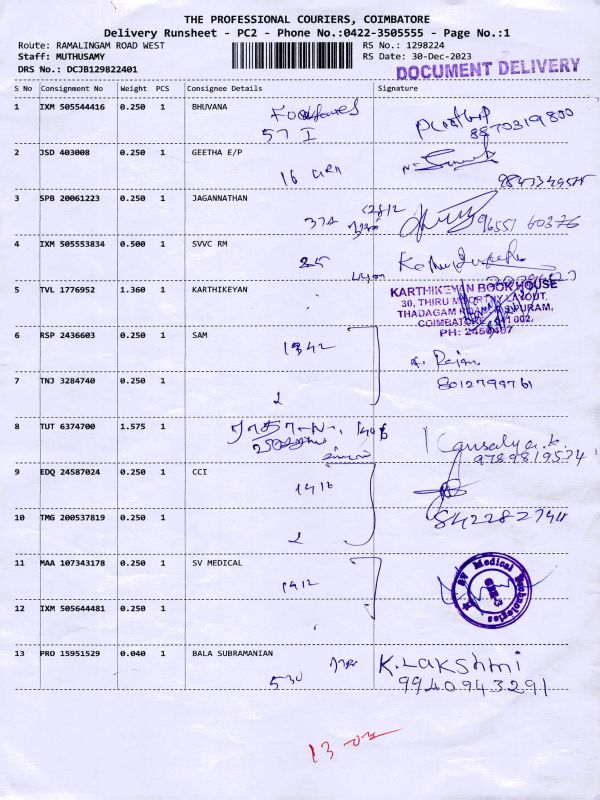 THE PROFESSIONAL COURIERS, COIMBATORE
Delivery Runsheet - PC2 - Phone No.:0422-3505555 - Page No.:1
Route: RAMALINGAM ROAD WEST
RS No.: 1298224
Staff: MUTHUSAMY
RS Date: 30-Dec-2023
DRS No.: DCJB129822401
DOCUMENT DELIVERY
S No Consignment No Weight PCS Consignee Details Signature
1 IXM 505544416 0.250 1 BHUVANA
57 I 8870319800
2 JSD 403008 0.250 1 GEETHA E/P
16
3 SPB 20061223 0.250 1 JAGANNATHAN
374 96551 60376
4 IXM 505553834 0.500 1 SVVC RM
25
5 TVL 1776952 1.360 1 KARTHIKEYAN
KARTHIKEYAN BOOK HOUSE
30, THIRU MOORTHY LAYOUT,
THADAGAM ROAD, R.S. PURAM,
COIMBATORE - 641 002.
PH: 2450407
6 RSP 2436603 0.250 1 SAM
1342
Rajan
7 TNJ 3284740 0.250 1
8012799761
2
8 TUT 6374700 1.575 1
Kausalya
9789819574
9 EDQ 24587024 0.250 1 CCI
1412
10 TMG 200537819 0.250 1
8422827944
2
11 MAA 107343178 0.250 1 SV MEDICAL
1412
SV Medical Technologies
12 IXM 505644481 0.250 1
13 PRO 15951529 0.040 1 BALA SUBRAMANIAN
530 K. LAKSHMI
9940943291
13